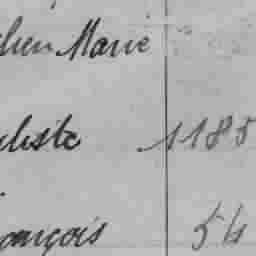 lien Marie
eleste 1185
ançois 54